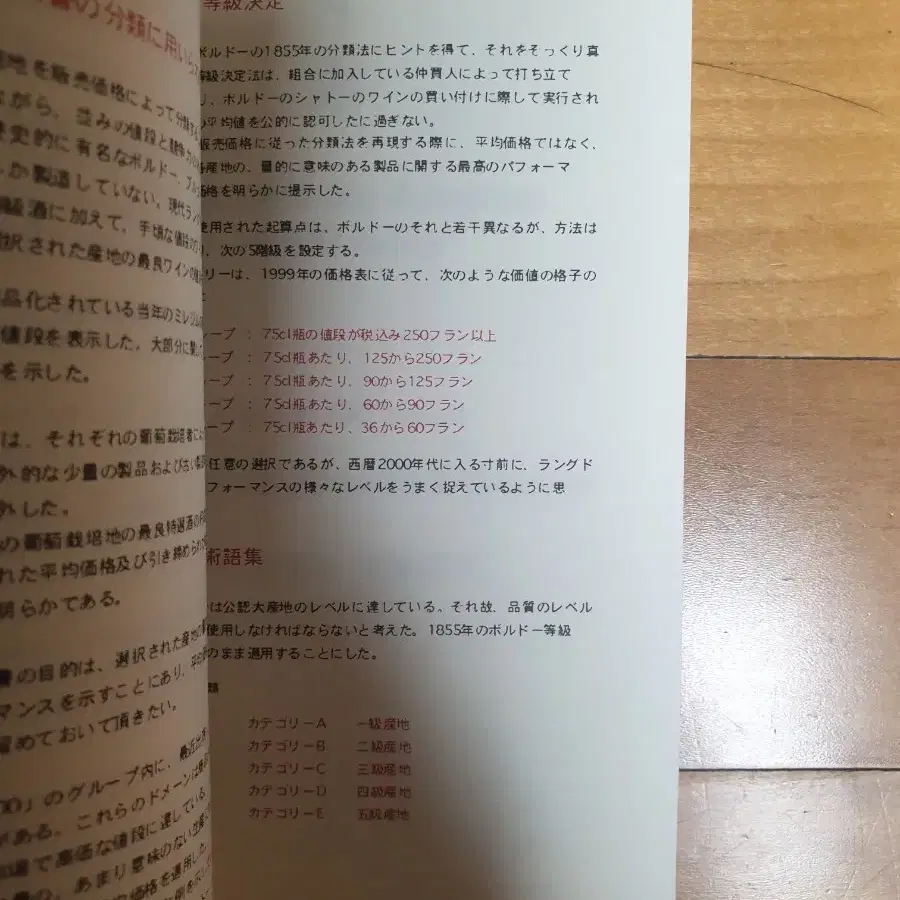 の分類に用い
地を販売価格によって分類する
がら、並みの値段と競争力の
史的に有名なボルドー、ブル
か製造していない。現代ラング
級酒に加えて、手頃な値段の
択された産地の最良ワインの
品化されている当年のミレジムの
値段を表示した。大部分に関して
を示した。
は、それぞれの葡萄栽培者によ
外的な少量の製品および古い
外した。
の葡萄栽培地の最良特選酒の
れた平均価格及び引き締められた
明らかである。
書の目的は、選択された産地の
マンスを示すことにあり、平均
留めておいて頂きたい。
00」のグループ内に、最近出
がある。これらのドメーンは
場で高価な値段に達している
の、あまり意味のない
価格を適用した
等級決定
ボルドーの1855年の分類法にヒントを得て、それをそっくり真
等級決定法は、組合に加入している仲買人によって打ち立て
り、ボルドーのシャトーのワインの買い付けに際して実行され
平均値を公的に認可したに過ぎない。
販売価格に従った分類法を再現する際に、平均価格ではなく、
産地の、量的に意味のある製品に関する最高のパフォーマ
価格を明らかに提示した。
使用された起算点は、ボルドーのそれと若干異なるが、方法は
、次の5階級を設定する。
リーは、1999年の価格表に従って、次のような価値の格子の
ープ : 75cl瓶の値段が税込み250フラン以上
ープ : 75cl瓶あたり、125から250フラン
ープ : 75cl瓶あたり、90から125フラン
ープ : 75cl瓶あたり、60から90フラン
ープ : 75cl瓶あたり、36から60フラン
任意の選択であるが、西暦2000年代に入る寸前に、ラングド
フォーマンスの様々なレベルをうまく捉えているように思
術語集
は公認大産地のレベルに達している。それ故、品質のレベル
使用しなければならないと考えた。1855年のボルドー等級
のまま適用することにした。
類
カテゴリーA 一級産地
カテゴリーB 二級産地
カテゴリーC 三級産地
カテゴリーD 四級産地
カテゴリーE 五級産地